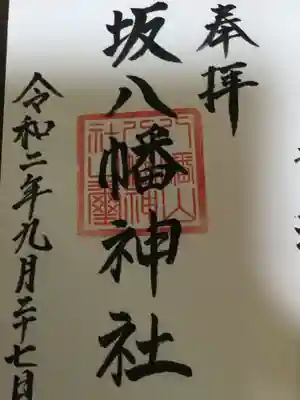 奉拝
坂八幡神社
令和二年九月二十七日